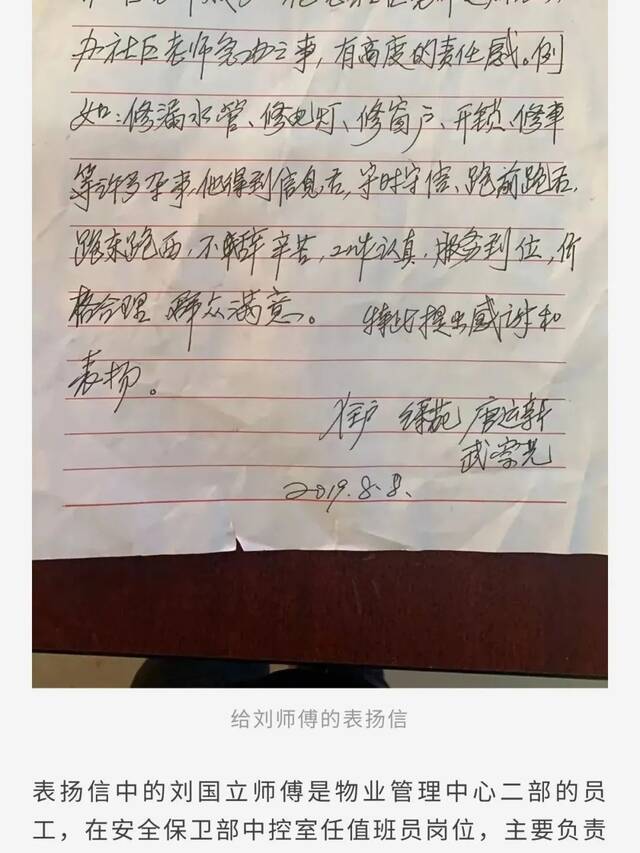 办社区老师急办之事,有高度的责任感。例
如:修漏水管、修电灯、修窗户、开锁、修車
等许多杂事,他得到信息后,守时守信、跑前跑后,
跑东跑西,不辞辛苦,工作认真,服务到位,价
格合理 群众满意。 特此提出感谢和
表扬。
住户 绿苑 唐运新
武崇光
2019.8.8.
给刘师傅的表扬信
表扬信中的刘国立师傅是物业管理中心二部的员
工,在安全保卫部中控室任值班员岗位,主要负责